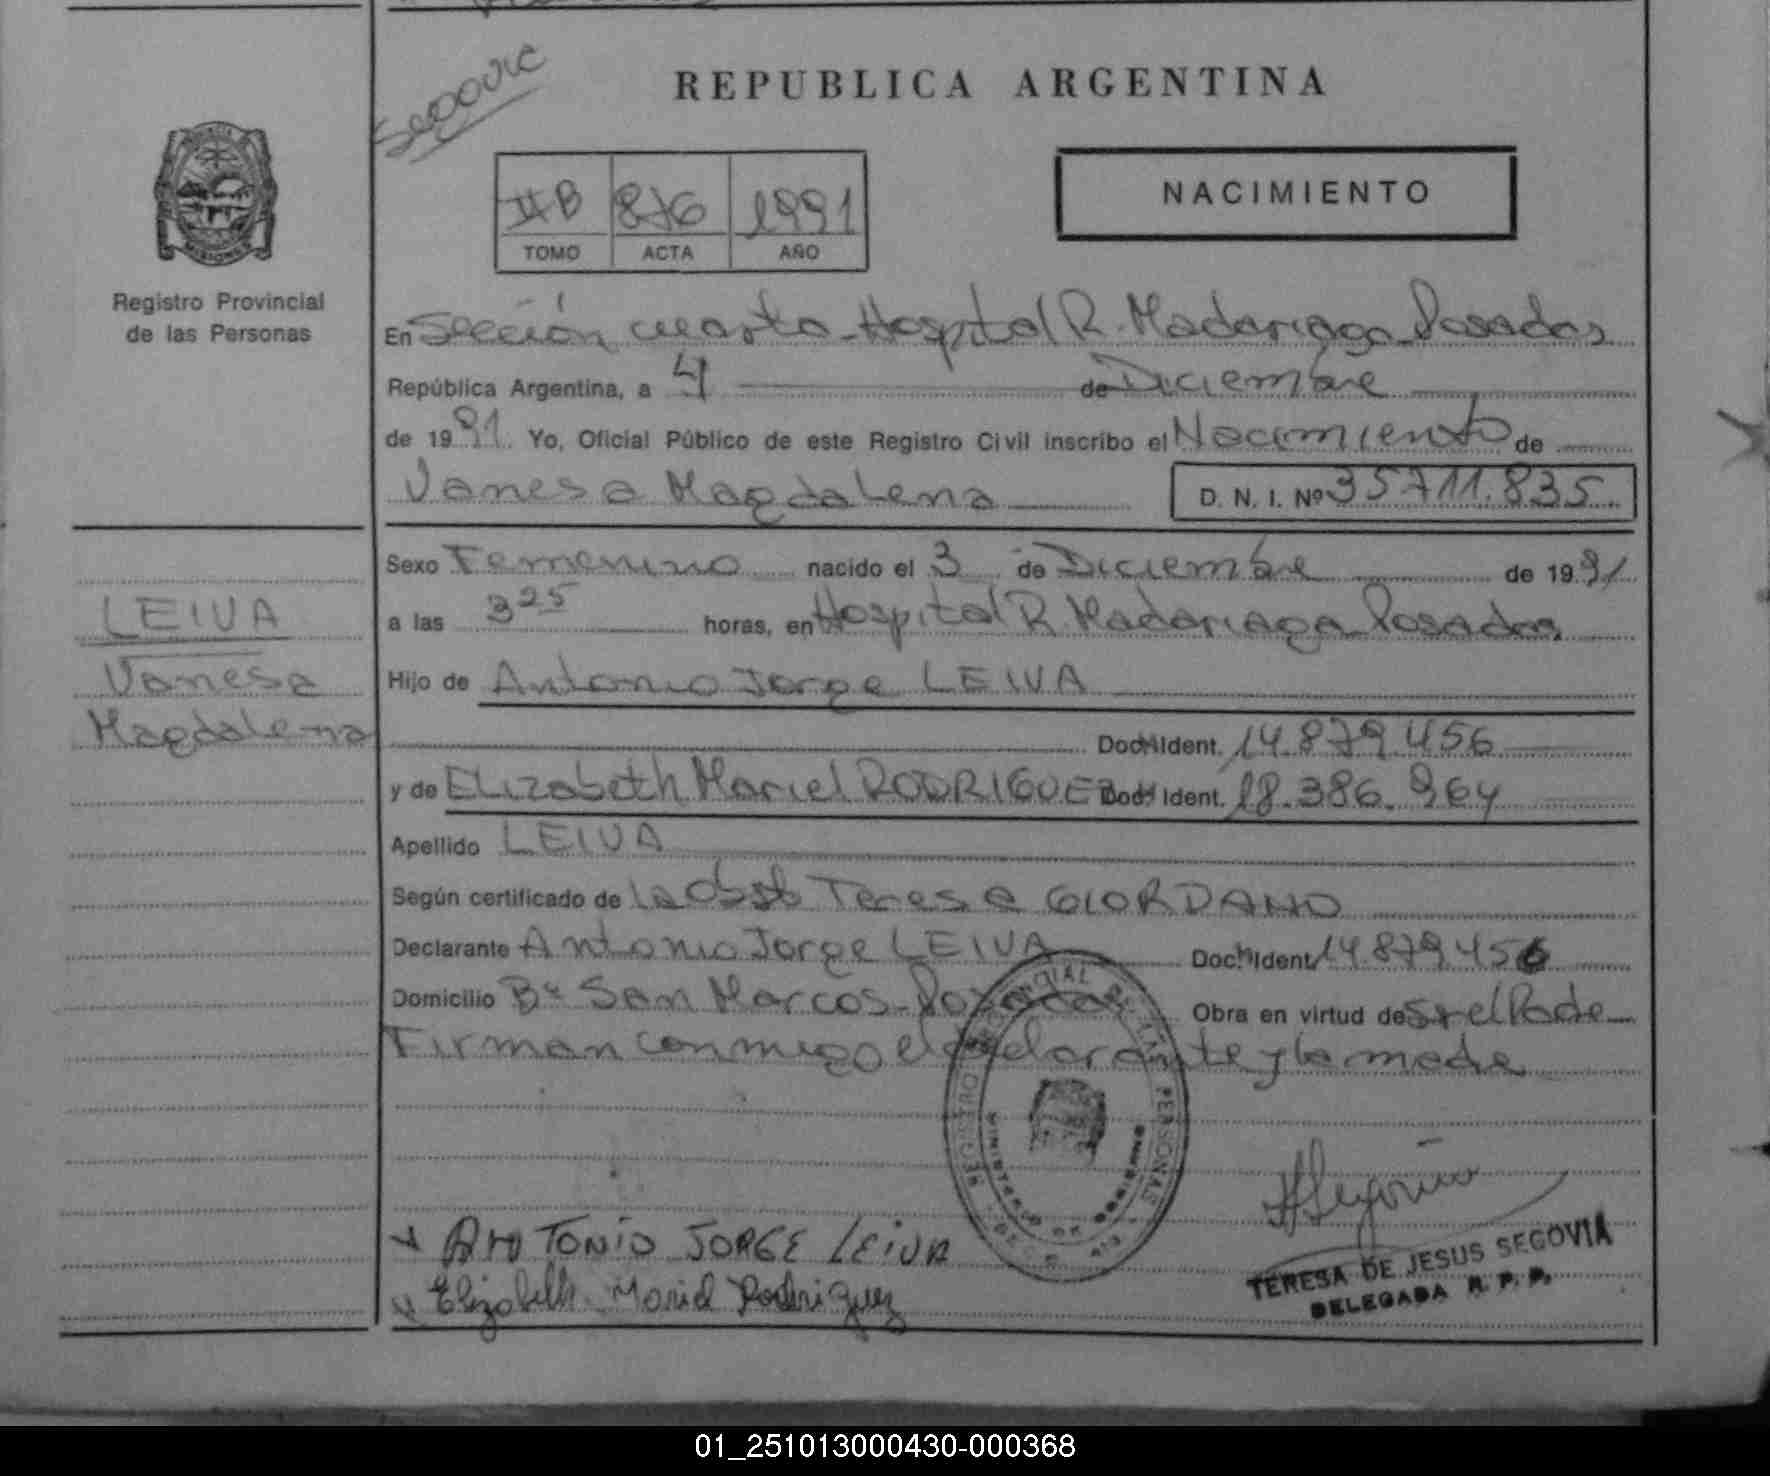 REPUBLICA ARGENTINA
II B 876 1991
TOMO ACTA AÑO
NACIMIENTO
Registro Provincial
de las Personas
En Sección cuarta-Hospital R. Madariaga Posadas
República Argentina, a 4 de Diciembre
de 1991. Yo, Oficial Público de este Registro Civil inscribo el Nacimiento de
Vanesa Magdalena D. N. I. Nº 35711.835
Sexo Femenino nacido el 3 de Diciembre de 1991
a las 3 25 horas, en Hospital R. Madariaga Posadas
Hijo de Antonio Jorge LEIVA
Doc. Ident. 14.879.456
y de Elizabeth Mariel RODRIGUEZ Doc. Ident. 18.386.964
Apellido LEIVA
Según certificado de la Obst Teresa GIORDANO
Declarante Antonio Jorge LEIVA Doc. Ident. 14879456
Domicilio Bº San Marcos-Posadas Obra en virtud de Ser el Padre
Firman conmigo el declarante y la madre
LEIVA
Vanesa
Magdalena
REGISTRO PROVINCIAL DE LAS PERSONAS
MINISTERIO DE GOBIERNO
ANTONIO JORGE LEIVA
Elizabeth Mariel Rodriguez
TERESA DE JESUS SEGOVIA
DELEGADA R. P. P.
01_251013000430-000368